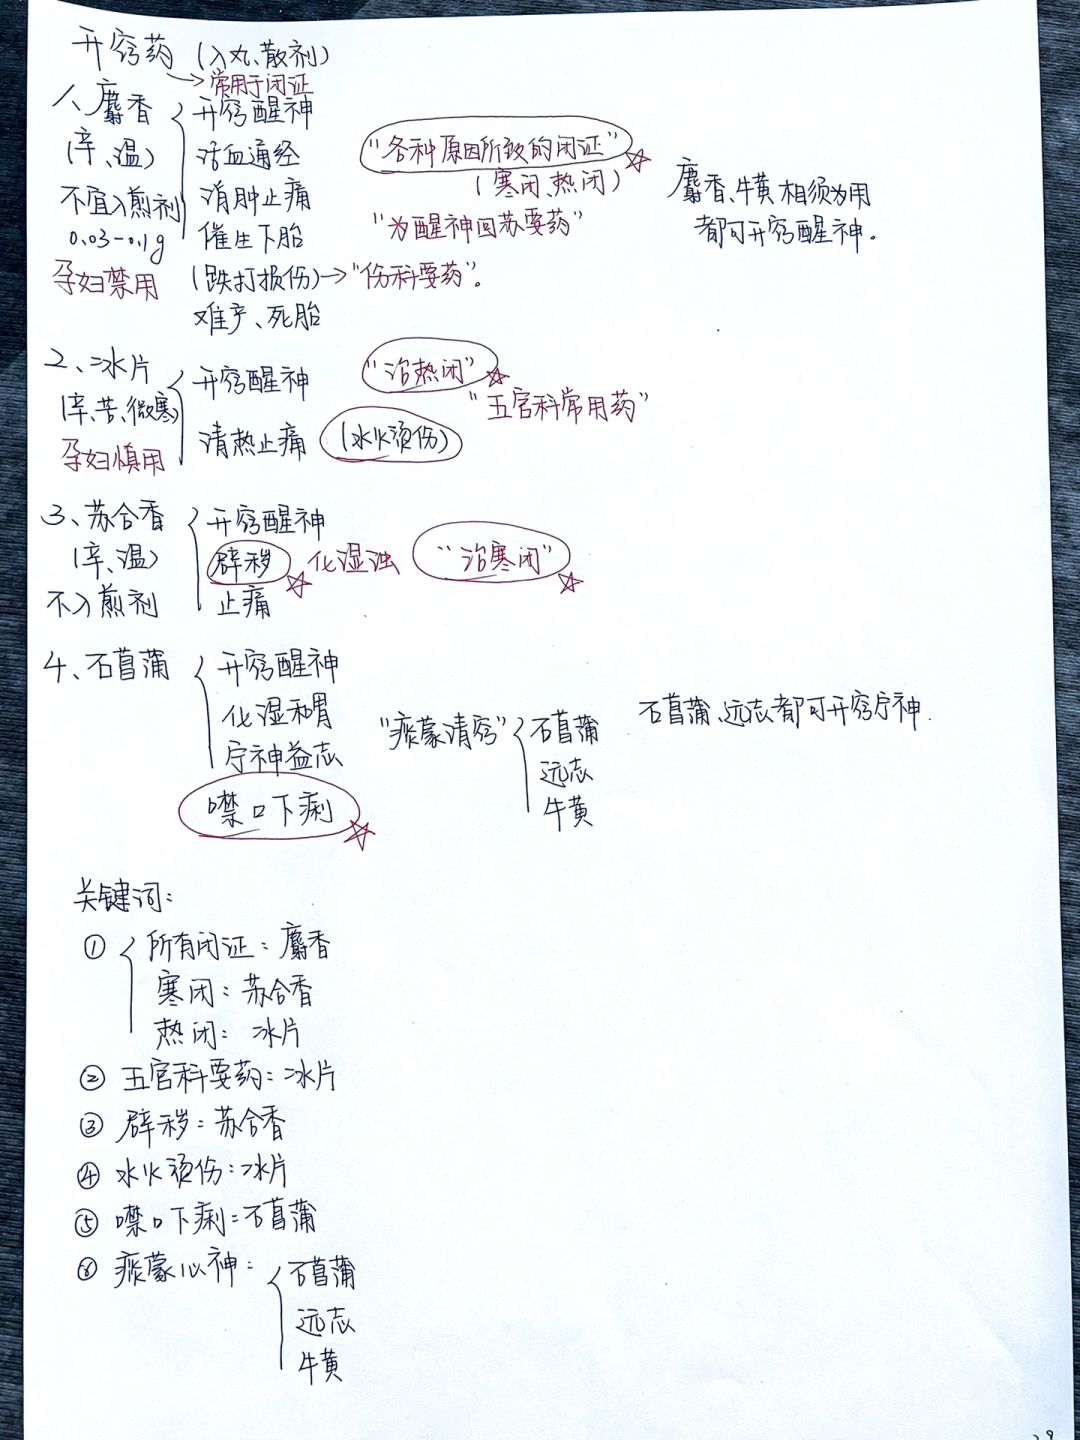 开窍药（入丸、散剂）
→常用于闭证
1、麝香 开窍醒神
（辛、温） 活血通经 "各种原因所致的闭证"
（寒闭、热闭）
不宜入煎剂 消肿止痛 "为醒神回苏要药"
0.03-0.1g 催生下胎
麝香、牛黄相须为用
都可开窍醒神。
孕妇禁用 （跌打损伤）→"伤科要药"。
难产、死胎
2、冰片 开窍醒神 "治热闭"
（辛、苦、微寒） "五官科常用药"
孕妇慎用 清热止痛 （水火烫伤）
3、苏合香 开窍醒神
（辛、温） 辟秽 化湿浊 "治寒闭"
不入煎剂 止痛
4、石菖蒲 开窍醒神
化湿和胃
宁神益志
噤口下痢
"痰蒙清窍" 石菖蒲
远志
牛黄
石菖蒲、远志都可开窍宁神.
关键词：
① 所有闭证：麝香
寒闭：苏合香
热闭：冰片
② 五官科要药：冰片
③ 辟秽：苏合香
④ 水火烫伤：冰片
⑤ 噤口下痢：石菖蒲
⑥ 痰蒙心神： 石菖蒲
远志
牛黄